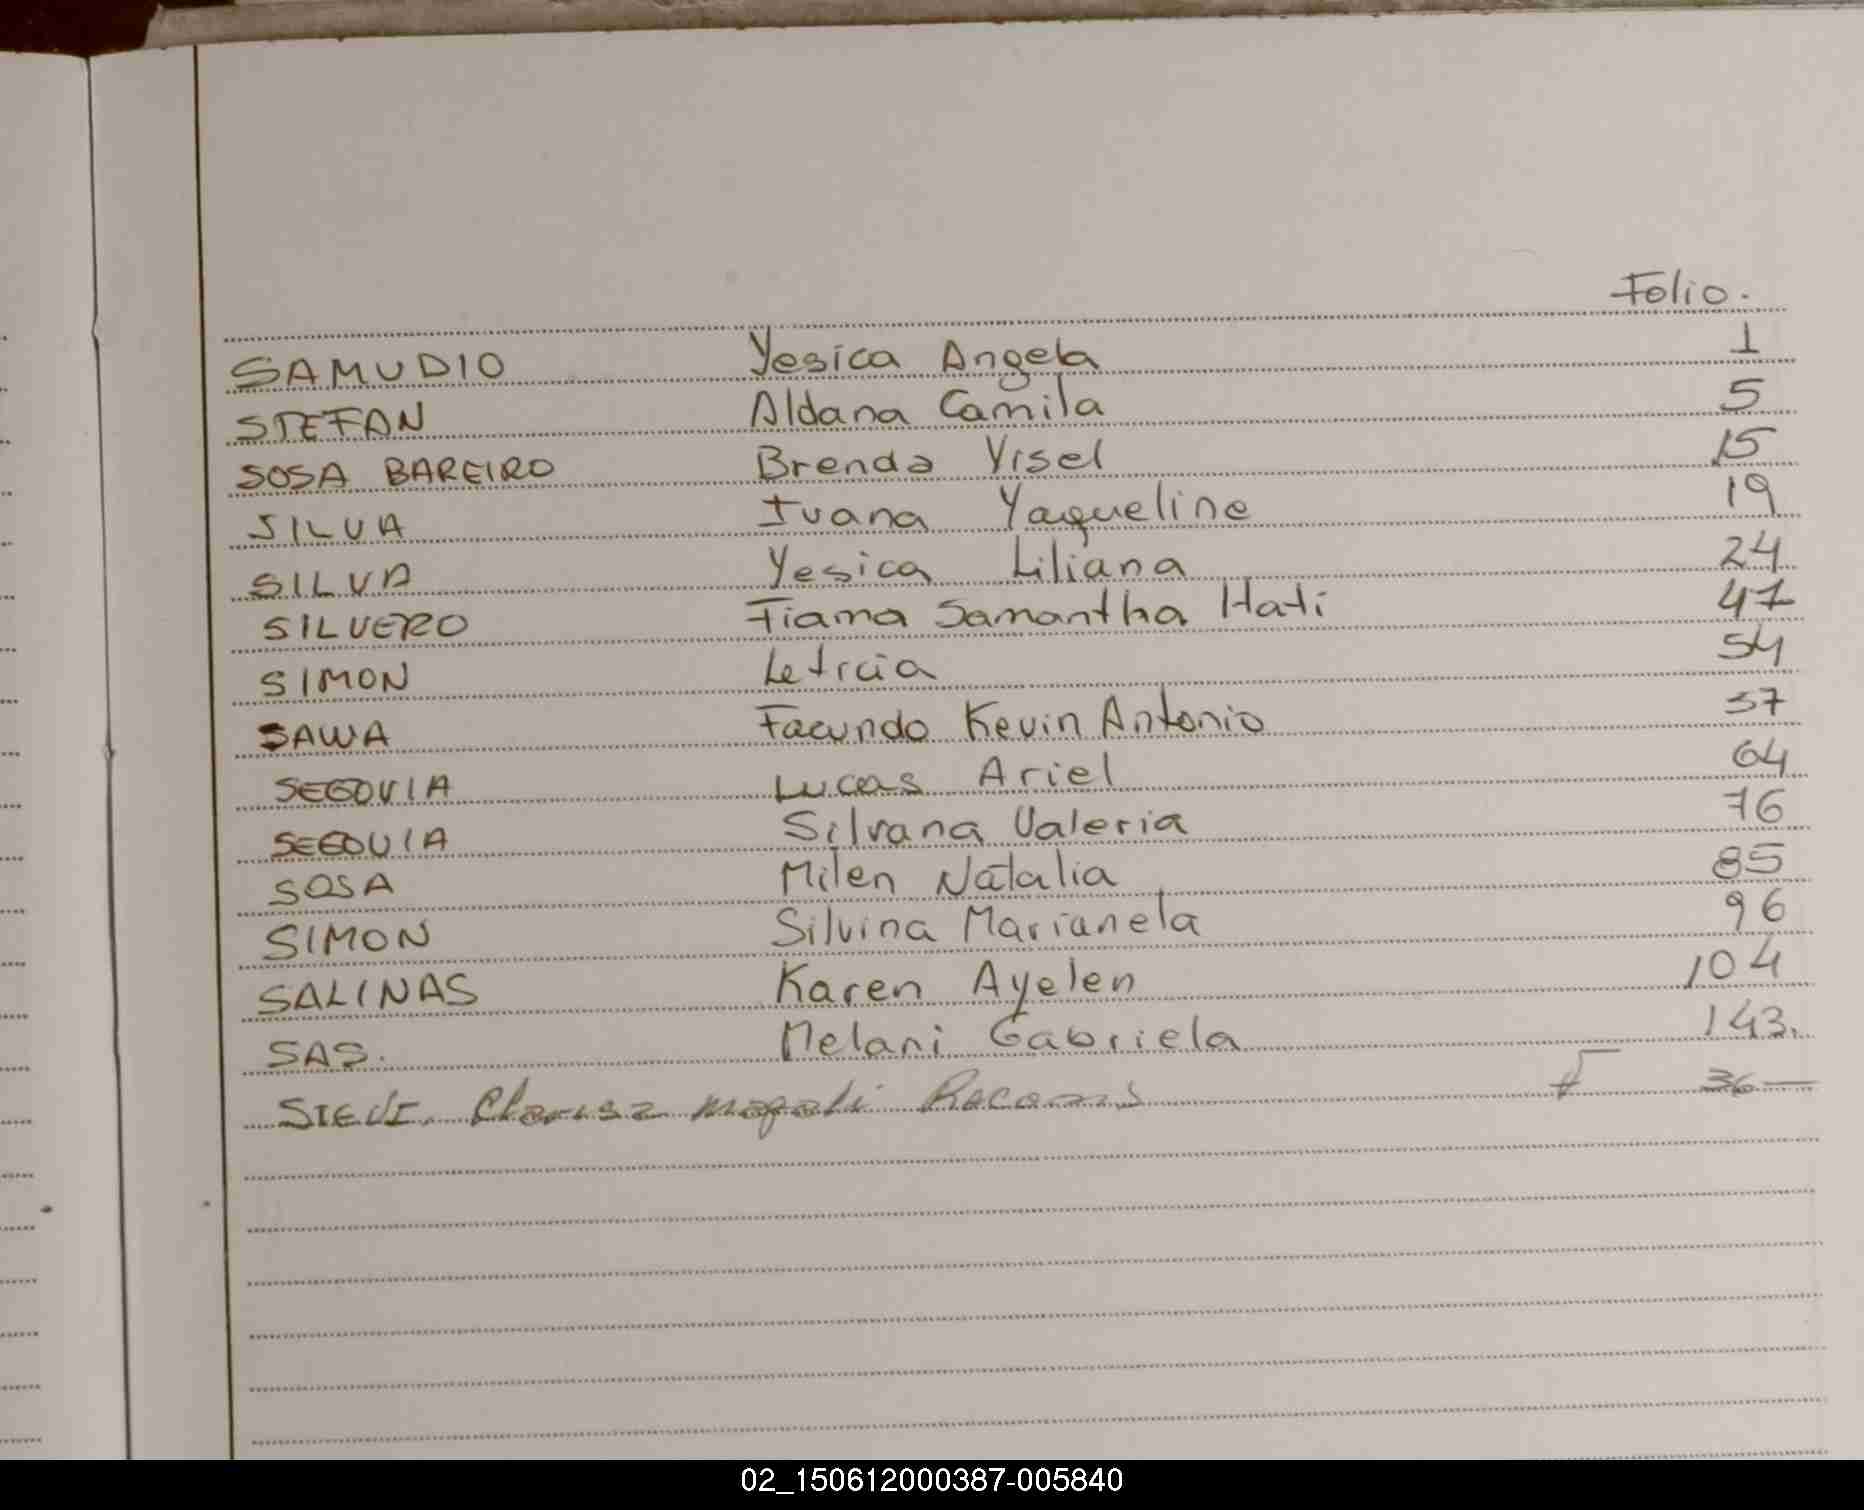 Folio.
SAMUDIO Yesica Angela 1
STEFAN Aldana Camila 5
SOSA BAREIRO Brenda Yisel 15
SILVA Ivana Yaqueline 19
SILVA Yesica Liliana 24
SILVERO Fiama Samantha Hati 47
SIMON Leticia 54
SAWA Facundo Kevin Antonio 57
SEGOVIA Lucas Ariel 64
SEGOVIA Silvana Valeria 76
SOSA Milen Natalia 85
SIMON Silvina Marianela 96
SALINAS Karen Ayelen 104
SAS. Melani Gabriela 143.
Clarisa Magali 36
02_150612000387-005840